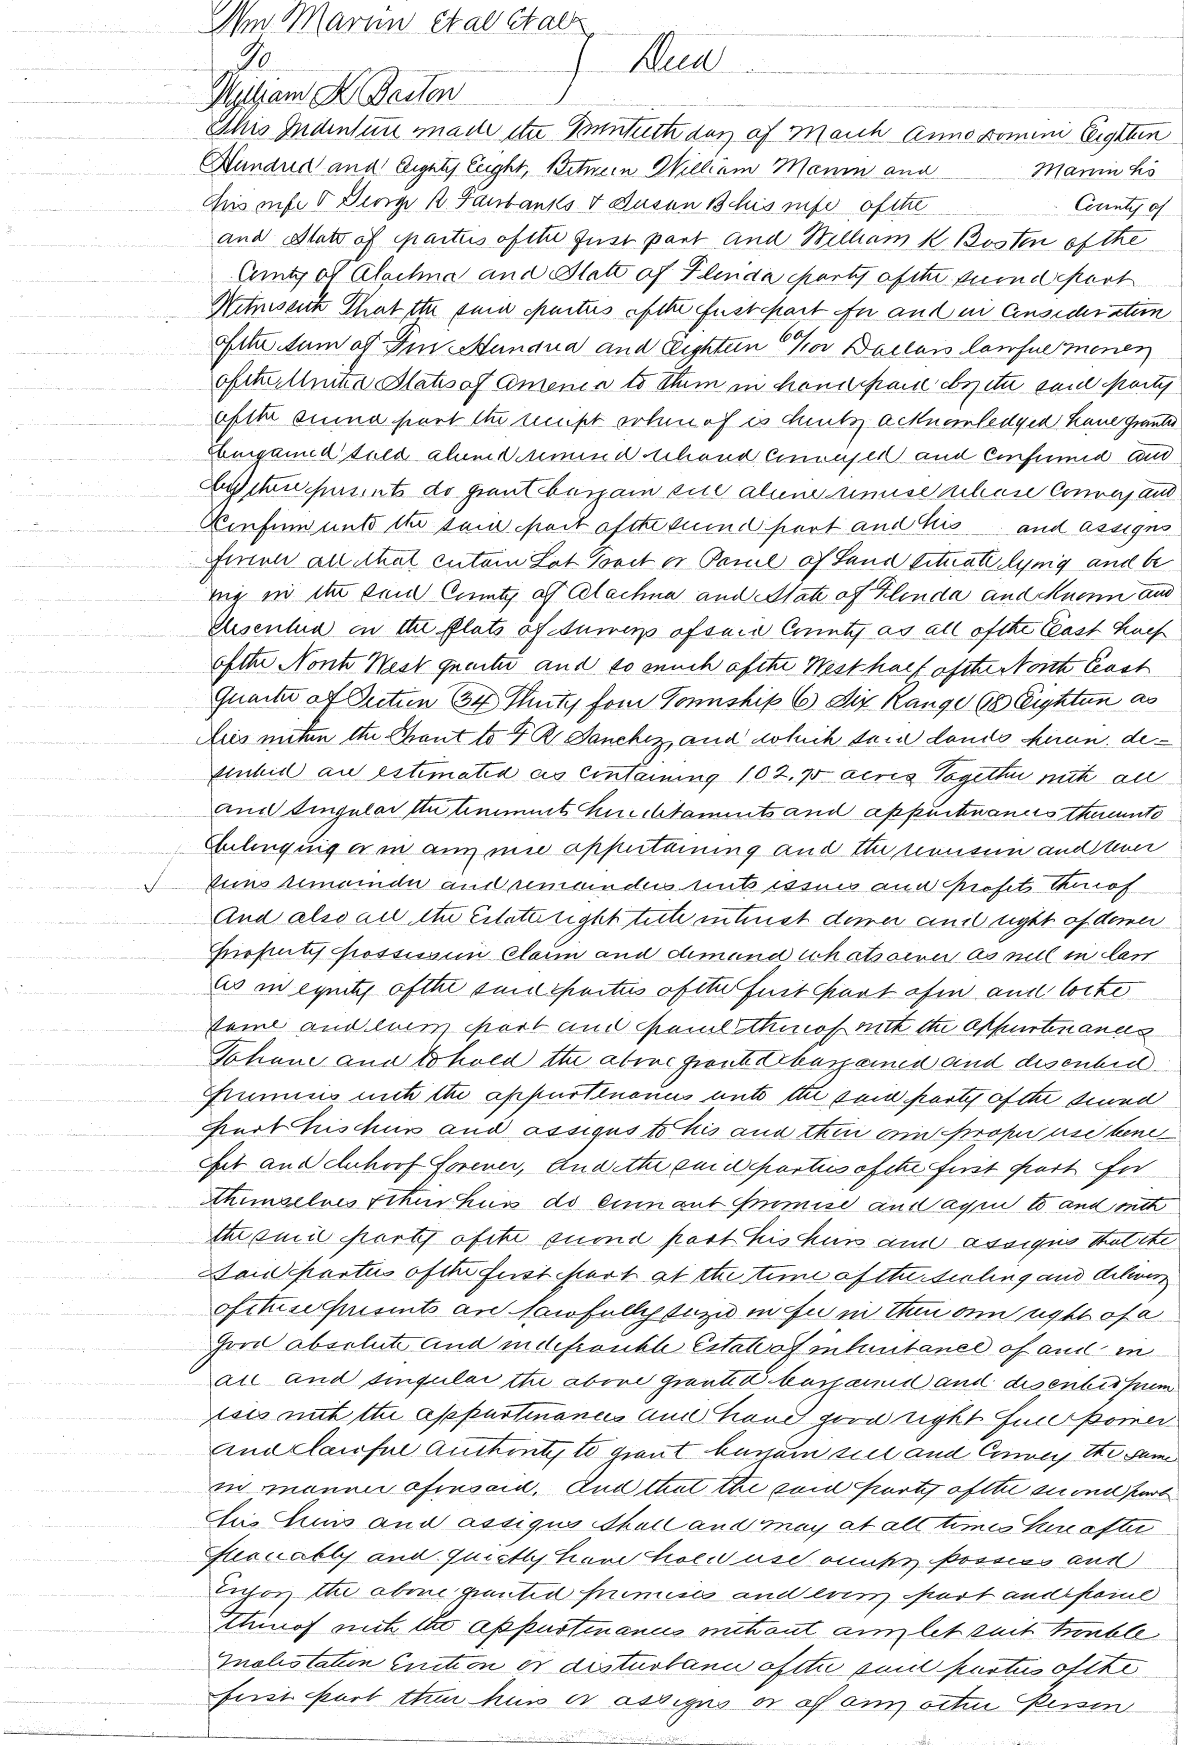 Wm Martin et al et als
To } Deed
William K Boston
This Indenture made the Twentieth day of March Anno Domini Eighteen
Hundred and Eighty Eight, Between William Martin and Martin his
his wife & George R Fairbanks & Susan B his wife of the County of
and State of parties of the first part and William K Boston of the
County of Alachua and State of Florida party of the second part
Witnesseth That the said parties of the first part for and in Consideration
of the sum of Hundred and Eighteen 60/100 Dollars lawful money
of the United States of America to them in hand paid by the said party
of the second part the receipt whereof is hereby acknowledged have granted
bargained sold aliened remised released conveyed and confirmed and
by these presents do grant bargain sell aliene remise release Convey and
Confirm unto the said part of the second part and his and assigns
forever all that certain Lot Tract or Parcel of Land situate lying and be
ing in the said County of Alachua and State of Florida and Known and
described on the plats of surveys of said County as all of the East half
of the North West quarter and so much of the West half of the North East
quarter of Section (34) Thirty four Township (6) Six Range (18) Eighteen as
lies within the Grant to F R Sanchez, and which said lands herein de=
scribed are estimated as containing 102.70 acres Together with all
and singular the tenements hereditaments and appurtenances thereunto
belonging or in any wise appertaining and the reversion and rever
sions remainder and remainders rents issues and profits thereof
And also all the Estate right title interest dower and right of dower
property possession Claim and demand whatsoever as well in law
as in equity of the said parties of the first part of in and to the
same and every part and parcel thereof with the appurtenances
To have and to hold the above granted bargained and described
premises with the appurtenances unto the said party of the second
part his heirs and assigns to his and their own proper use bene
fit and behoof forever, And the said parties of the first part for
themselves & their heirs do covenant promise and agree to and with
the said party of the second part his heirs and assigns that the
said parties of the first part at the time of the sealing and delivery
of these presents are lawfully seized in fee in their own right of a
good absolute and indefeasible Estate of inheritance of and in
all and singular the above granted bargained and described prem
ises with the appurtenances and have good right full power
and lawful Authority to grant bargain sell and Convey the same
in manner aforesaid. And that the said party of the second part
his heirs and assigns shall and may at all times hereafter
peaceably and quietly have hold use occupy possess and
Enjoy the above granted premises and every part and parcel
thereof with the appurtenances without any let suit trouble
molestation Eviction or disturbance of the said parties of the
first part their heirs or assigns or of any other Person